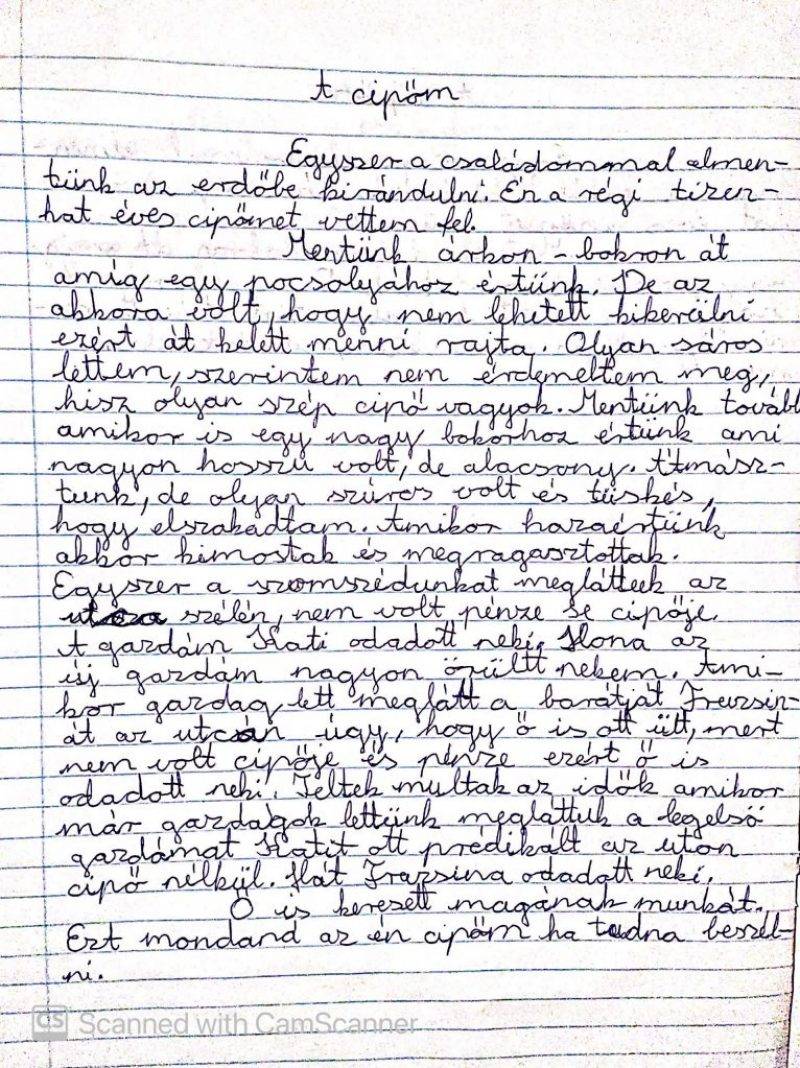 A cipőm
Egyszer a családommal elmen-
tünk az erdőbe kirándulni. Én a régi tizen-
hat éves cipőmet vettem fel.
Mentünk árkon - bokron át
amíg egy pocsolyához értünk. De az
akkora volt, hogy nem lehetett kikerülni
ezért át kelett menni rajta. Olyan sáros
lettem, szerintem nem érdemeltem meg,
hisz olyan szép cipő vagyok. Mentünk továbl
amikor is egy nagy bokorhoz értünk ami
nagyon hosszú volt, de alacsony. Átmász-
tunk, de olyan szúros volt és tüskés,
hogy elszakadtam. Amikor hazaértünk
akkor kimostak és megragasztottak.
Egyszer a szomszédunkat megláttuk az
utcza szélén, nem volt pénze se cipője.
A gazdám Kati odadott neki. Ilona az
új gazdám nagyon örültt nekem. Ami-
kor gazdag lett meglátt a barátját Fruzsin-
át az utcán úgy, hogy ő is ott ült, mert
nem volt cipője és pénze ezért ő is
odadott neki. Teltek multak az idők amikor
már gazdagok lettünk megláttuk a legelső
gazdámat Katit ott prédikált az uton
cipő nélkül. Hát Fruzsina odadott neki.
Ő is keresett magának munkát.
Ezt mondand az én cipőm ha tudna beszél-
ni.
CS Scanned with CamScanner